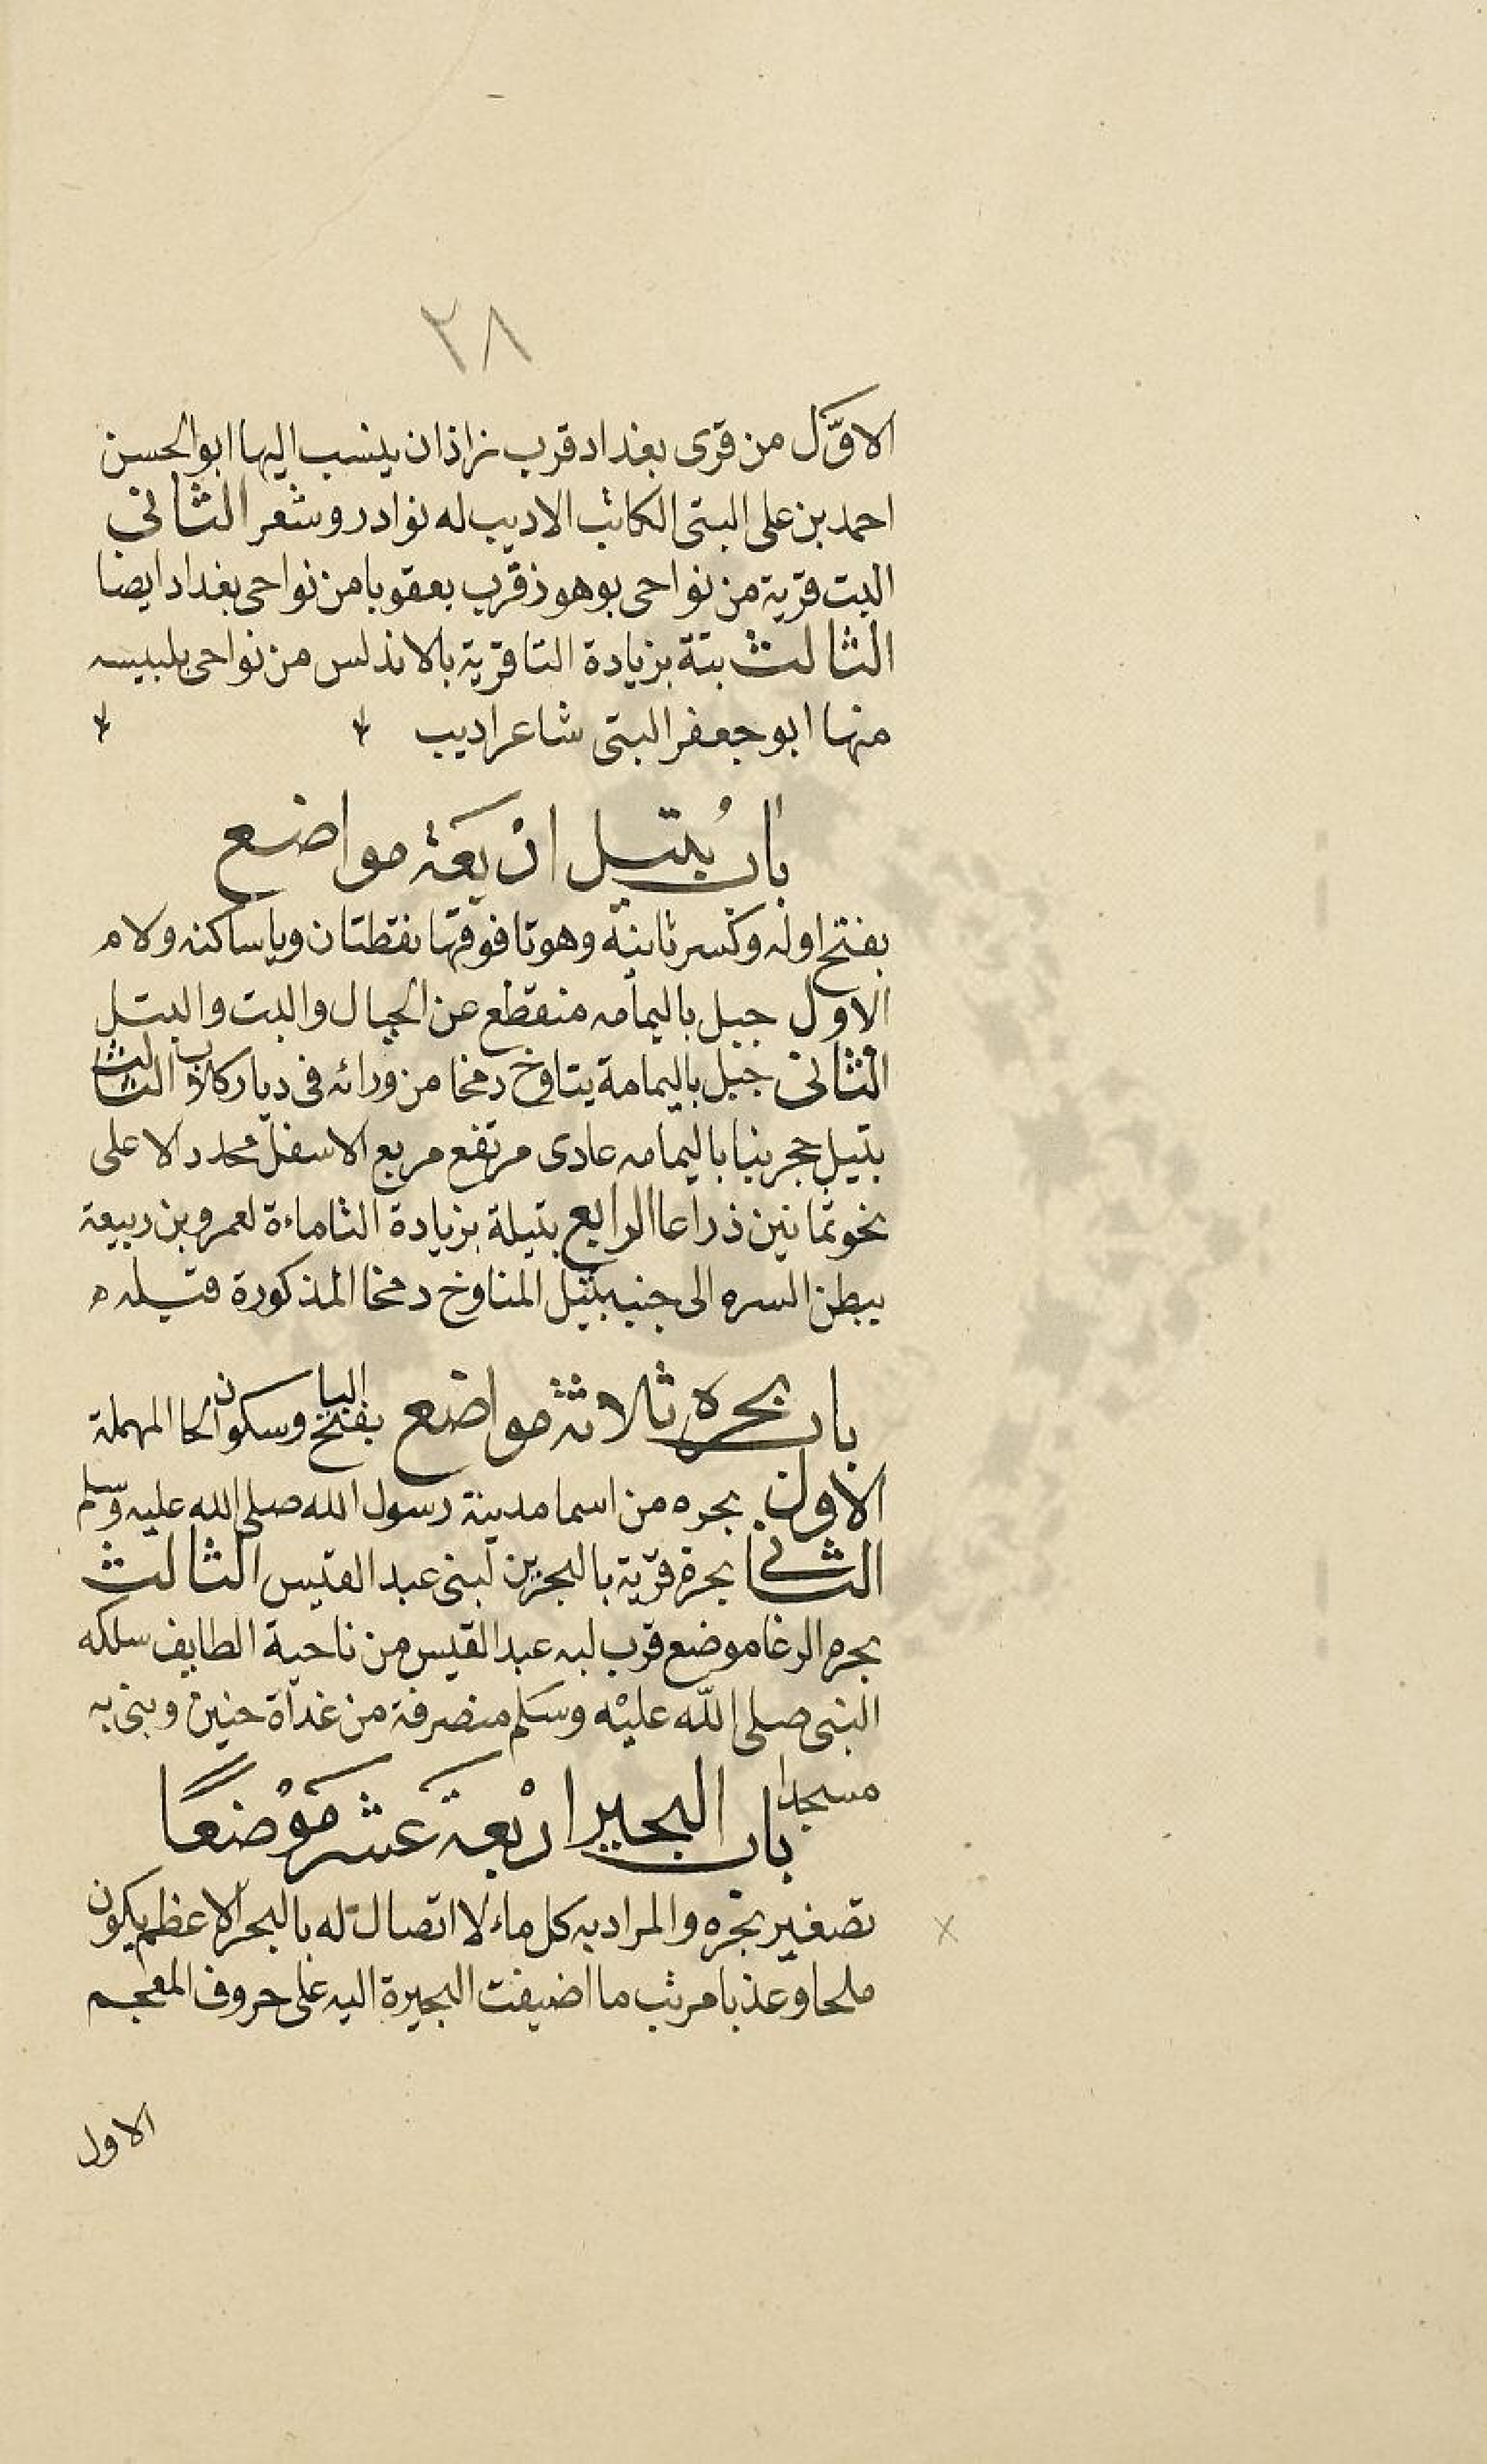 ٢٨
الاوَّل من قرى بغداد قرب نزاذان ينسب اليها ابو الحسن
احمد بن على البتى الكاتب الاديب له نوادر وشعر الثانى
البت قرية من نواحى بوهوذ قرب بعقوبا من نواحى بغداد ايضا
الثالث بتة بزيادة التا قرية بالاندلس من نواحى بلبيسه
منها ابو جعفر البتى شاعر اديب
باب بُتيل ارْبعَة مواضع
بفتح اوله وكسر ثانيه وهو تا فوقها نقطتان ويا ساكنه ولام
الاول جبل باليمامه منقطع عن الجبال والبت والبتل
الثانى جبل باليمامة يتاوخ دمخا من ورائه فى ديار كلاب الثالث
بتيل حجر بنا باليمامه عادى مرتفع مربع الاسفل محدد الاعلى
نحو ثمانين ذراعا الرابع بتيلة بزيادة التا ماءة لعمرو بن ربيعة
ببطن السره الى جنب بتيل المناوخ دمخا المذكورة قتيله ه
باب بحره ثلاثة مواضع بفتح البا وسكون الحا المهملة
الاول بحره من اسما مدينة رسول الله صلى الله عليه وسلم
الثانى بحرة قرية بالبحرين لبنى عبد القيس الثالث
بحره الرغا موضع قرب لبه عبد القيس من ناحية الطايف سلكه
النبى صلى الله عليْه وسَلم منصرفة من غداة حنين وبنى به
مسجدا
باب البحير ارْبعة عَشر مَوْضعًا
تصغير بحره والمراد به كل ماء لا اتصال له بالبحر الاعظم يكون
ملحا وعذبا مرتب ما اضيفت البحيرة اليه على حروف المعجم
الاول